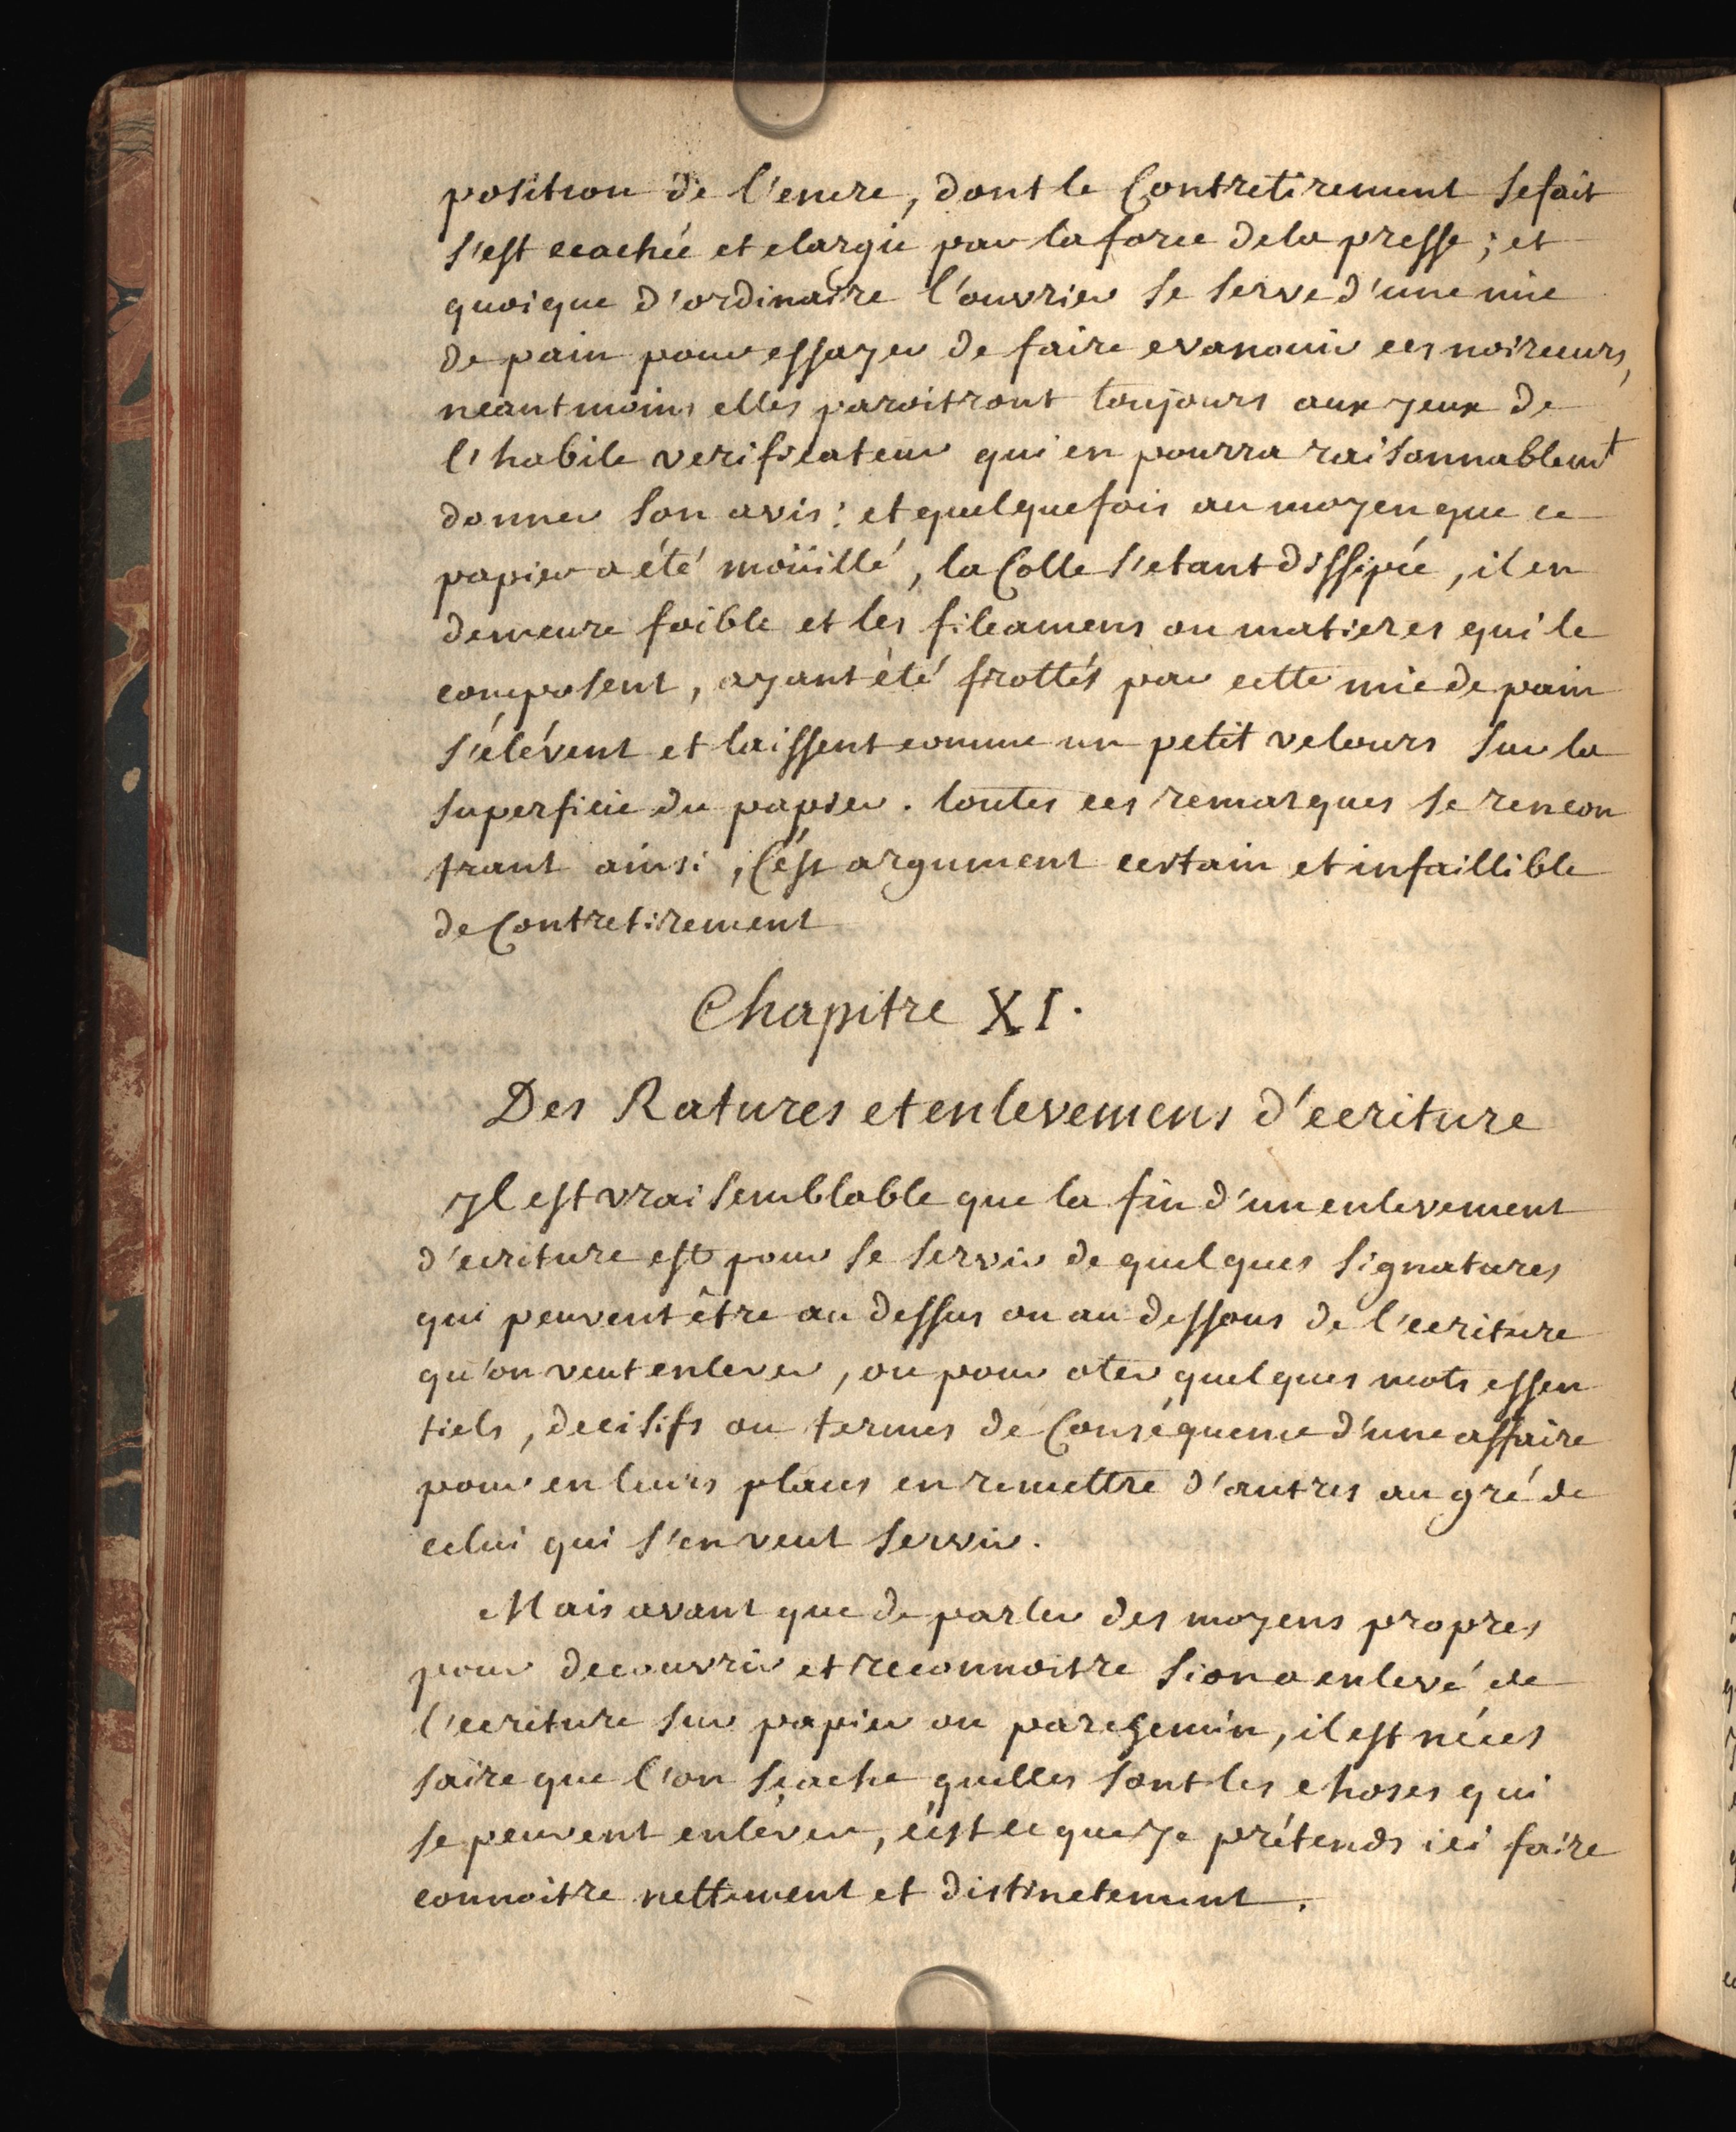 position de l'encre, dont le Contretirement se fait
s'est ecachée et elargie par la force de la presse ; et
quoique d'ordinaire l'ouvrier se serve d'une mie
de pain pour essayer de faire evanouir ces noirceurs,
neantmoins elles paroitront toujours aux yeux de
l'habile verificateur qui en pourra raisonnablemt
donner son avis : et quelquefois au moyen que ce
papier a été moüillé, la Colle s'etant dissipée, il en
demeure foible et les fileamens ou matieres qui le
composent, ayant été frottés par cette mie de pain
s'élévent et laissent comme un petit velours sur la
superficie du papier. toutes ces remarques se rencon
trant ainsi, C'est argument certain et infaillible
de Contretirement
Chapitre XI.
Des Ratures et enlevemens d'ecriture
Il est vraisemblable que la fin d'un enlevement
d'ecriture est pour se servir de quelques signatures
qui peuvent être au dessus ou au dessous de l'ecriture
qu'on veut enlever, ou pour oter quelques mots essen
tiels, decisifs ou termes de Conséquence d'une affaire
pour en leurs places en remettre d'autres au gré de
celui qui s'en veut servir.
Mais avant que de parler des moyens propres
pour decouvrir et reconnoitre si on a enlevé de
l'ecriture sur papier ou parchemin, il est néces
saire que l'on sçache quelles sont les choses qui
se peuvent enléver, c'est ce que je prétends ici faire
connoitre nettement et distinctement.